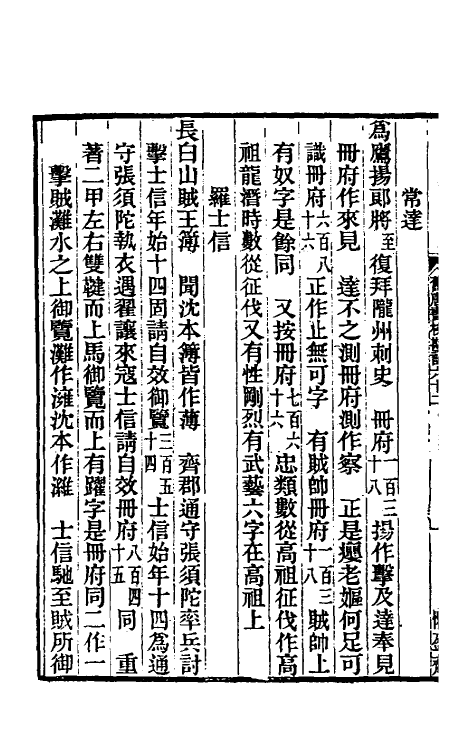 常達
為鷹揚郎將至復拜隴州刺史　冊府一百三十八揚作擊及達奉見
冊府作來見　達不之測冊府測作察　正是癭老嫗何足可
識冊府六百八十六正作止無可字　有賊帥冊府一百三十八賊帥上
有奴字是餘同　又按冊府七百六十六忠類數從高祖征伐作高
祖龍潛時數從征伐又有性剛烈有武藝六字在高祖上
羅士信
長白山賊王簿　聞沈本簿皆作薄　齊郡通守張須陀率兵討
擊士信年始十四固請自效御覽三百五十四士信始年十四為通
守張須陀執衣遇翟讓來寇士信請自效冊府八百四十五同　重
著二甲左右雙鞬而上馬御覽而上有躍字是冊府同二作一
擊賊濰水之上御覽濰作濰沈本作濰　士信馳至賊所御